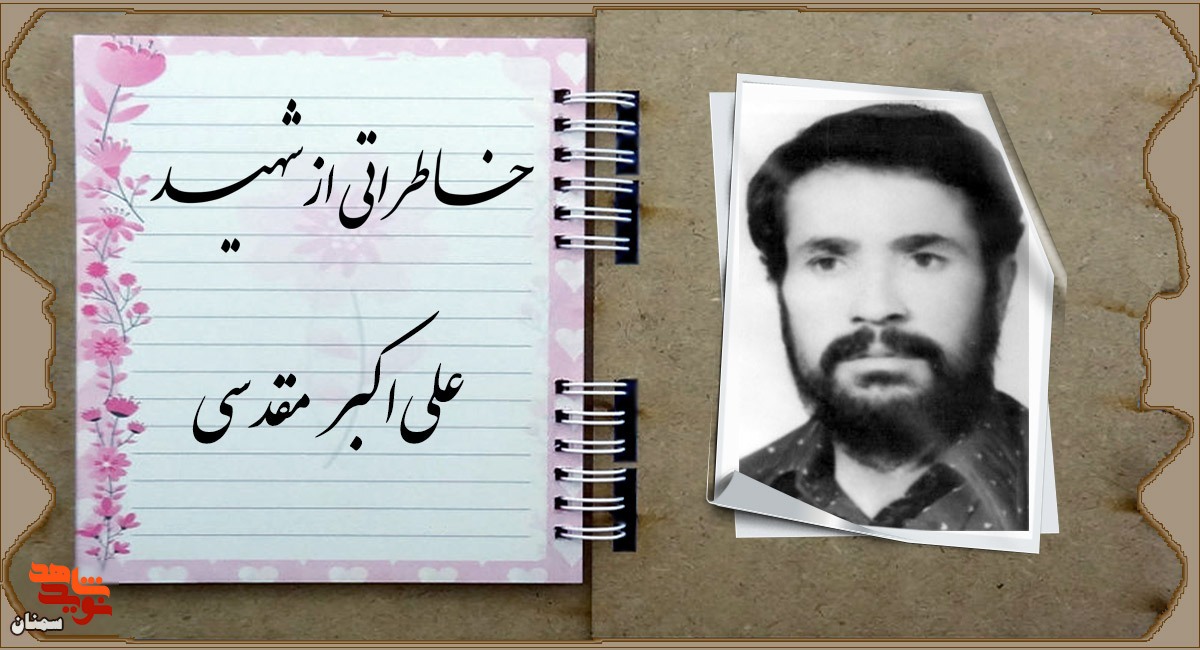 خاطراتی از شهید
علی اکبر مقدسی
نوید شاهد
سمنان